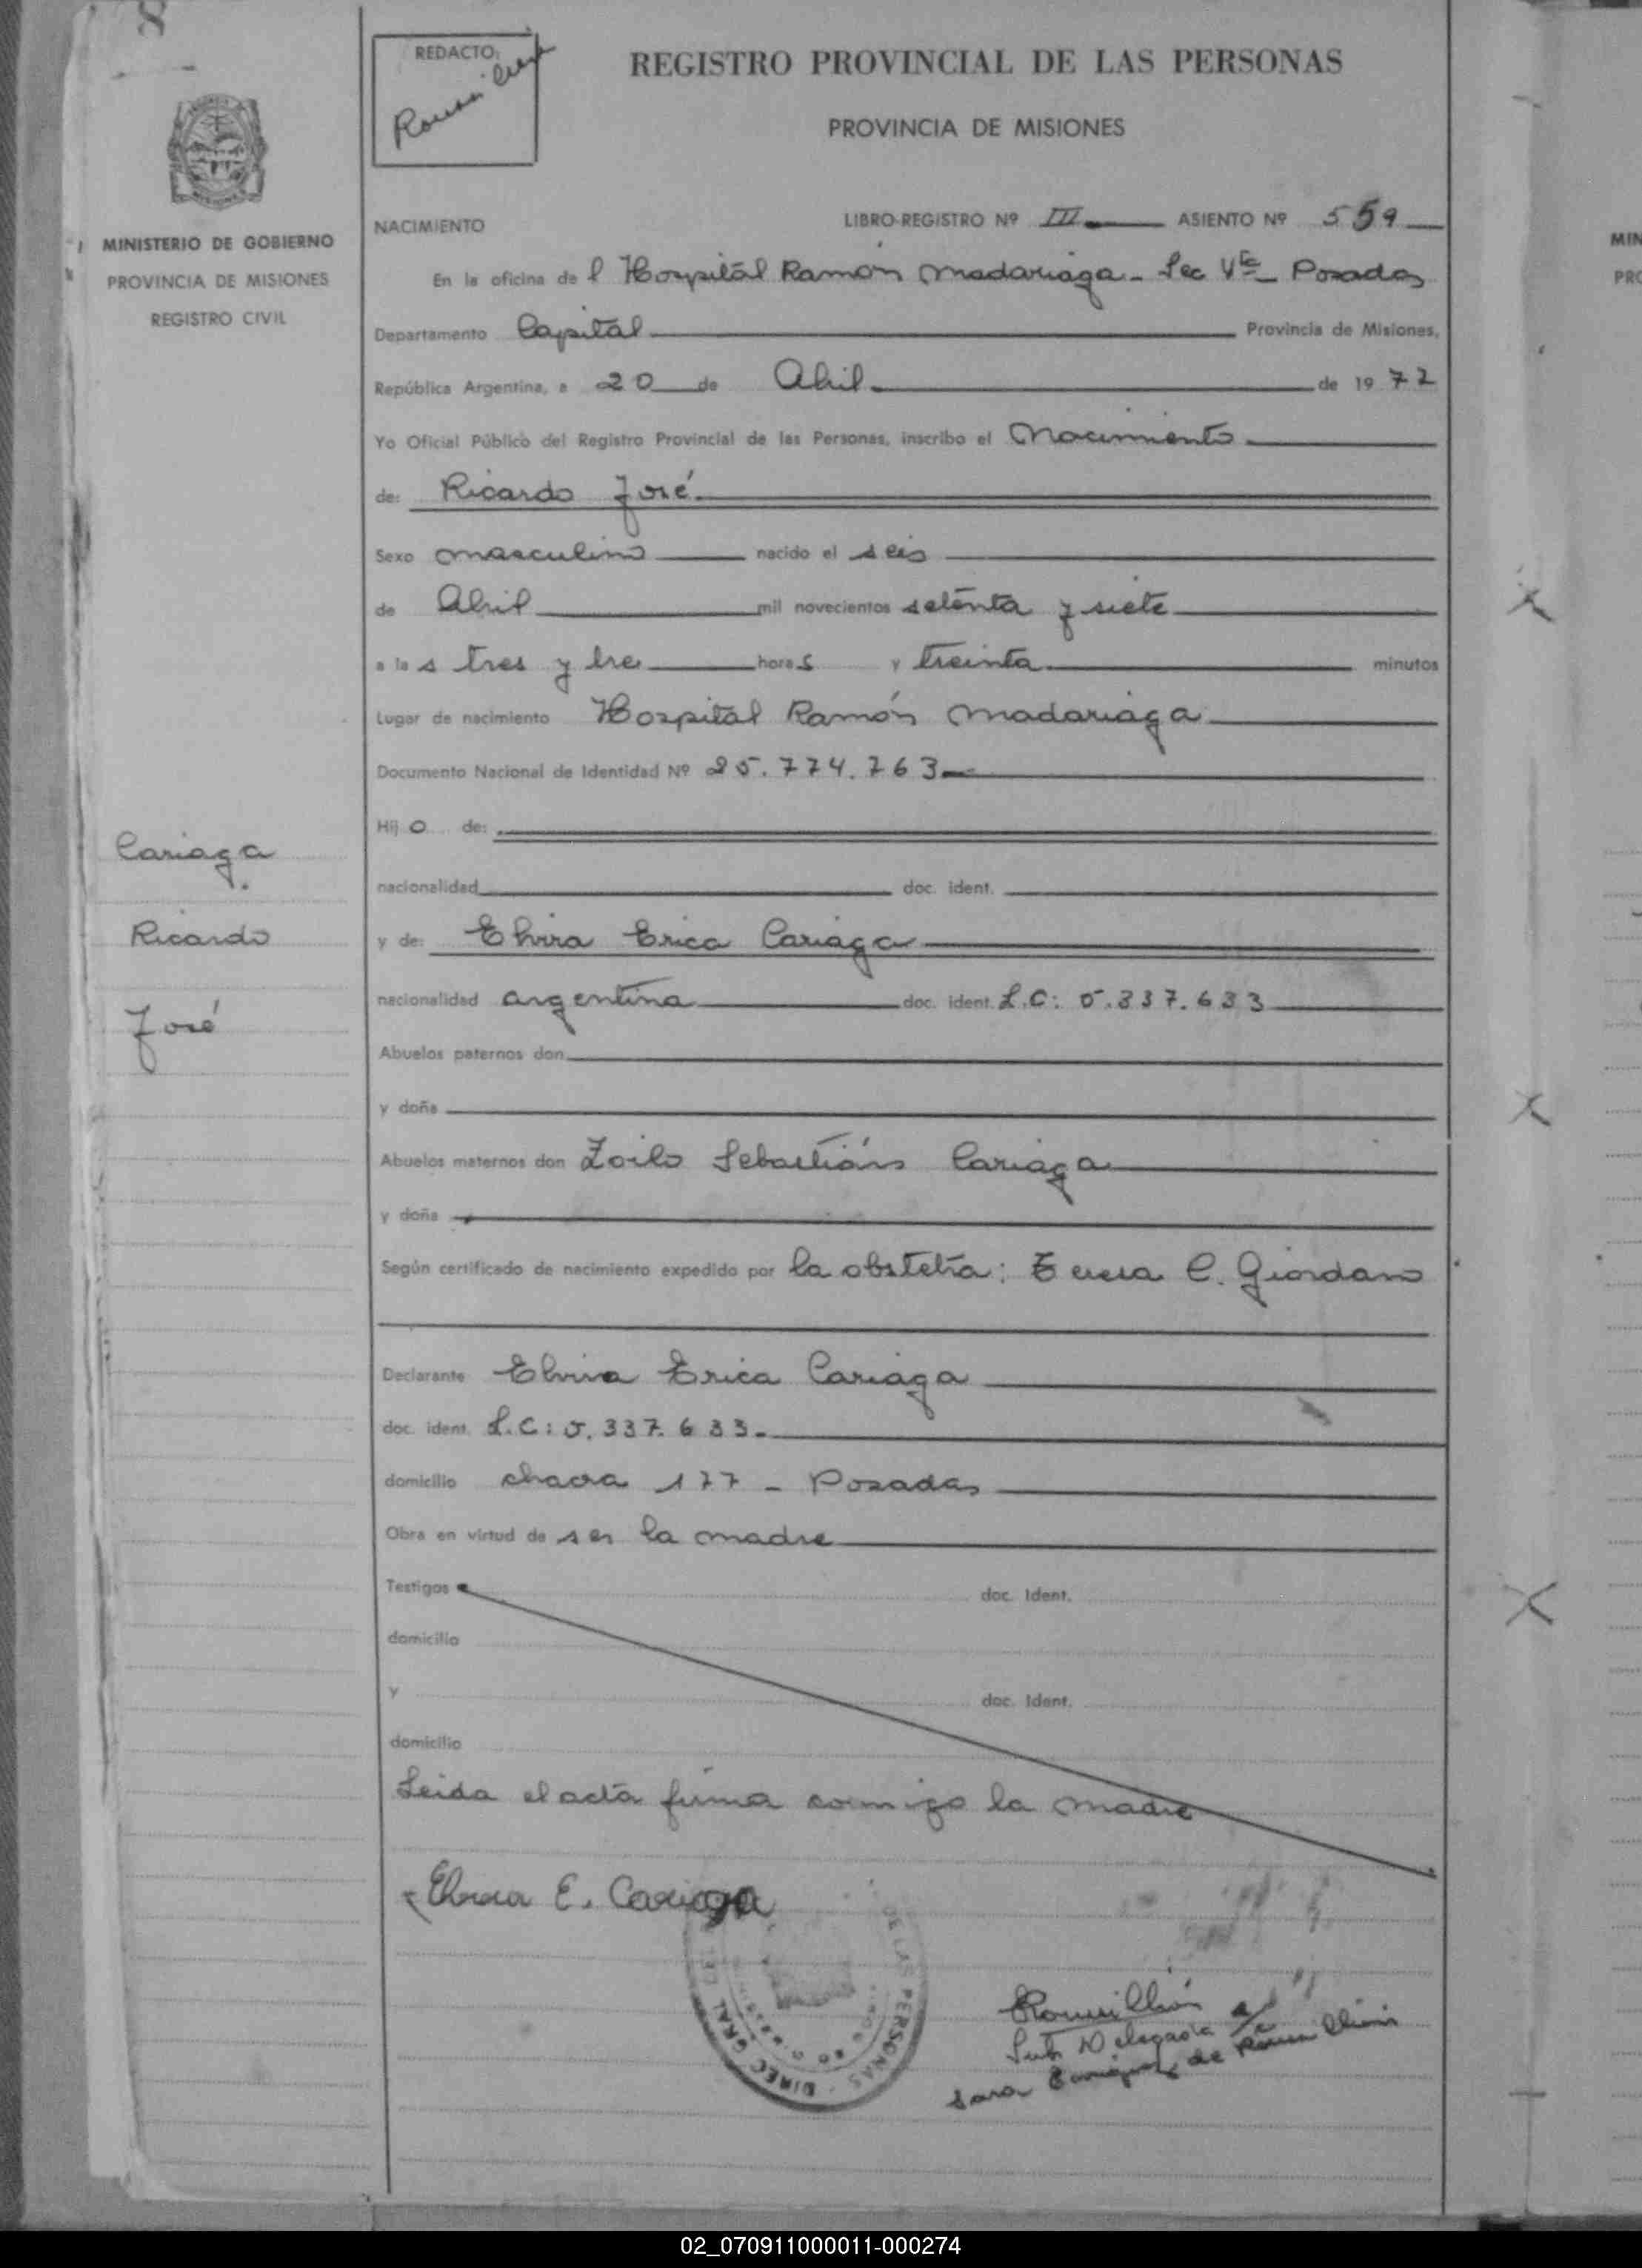 8
REDACTO:
REGISTRO PROVINCIAL DE LAS PERSONAS
PROVINCIA DE MISIONES
MINISTERIO DE GOBIERNO
PROVINCIA DE MISIONES
REGISTRO CIVIL
NACIMIENTO LIBRO-REGISTRO Nº III ASIENTO Nº 559
En la oficina de l Hospital Ramón Madariaga - Sec Vta - Posadas
Departamento Capital Provincia de Misiones,
República Argentina, a 20 de Abril de 19 77
Yo Oficial Público del Registro Provincial de las Personas, inscribo el Nacimiento
de: Ricardo José
Sexo masculino nacido el seis
de Abril mil novecientos setenta y siete
a la s tres y tre horas y treinta minutos
Lugar de nacimiento Hospital Ramón Madariaga
Documento Nacional de Identidad Nº 25.774.763
Hij o de:
nacionalidad doc. ident.
y de: Elvira Erica Cariaga
nacionalidad argentina doc. ident. L.C: 5.337.633
Abuelos paternos don
y doña
Abuelos maternos don Zoilo Sebastián Cariaga
y doña
Según certificado de nacimiento expedido por la obstetra: Teresa C. Giordano
Declarante Elvira Erica Cariaga
doc. ident. L.C: 5.337.633
domicilio chacra 177 - Posadas
Obra en virtud de ser la madre
Testigos doc. Ident.
domicilio
y doc. Ident.
domicilio
Leida el acta firma conmigo la madre
Elvira E. Cariaga
Cariaga
Ricardo
José
DIREC. GRAL. DE LAS PERSONAS
Sub Delegada
Sara de
MIN
PRO
02_070911000011-000274